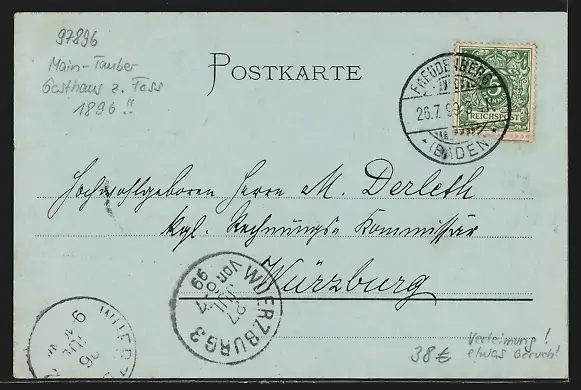 97896
Main-Tauber
Gasthaus z. Fass
1896!!
POSTKARTE
FREUDENBERG
26.7.99
(BADEN)
5
REICHSPOST
Hochwohlgeboren Herrn M. Derleth
kgl. Rechnungs-Kommissär
Würzburg
WUERZBURG 3
27
JUL
VOR 6-7
99
WUERZB
26
JUL
9
38€
Verleimung!
etwas Geruch!